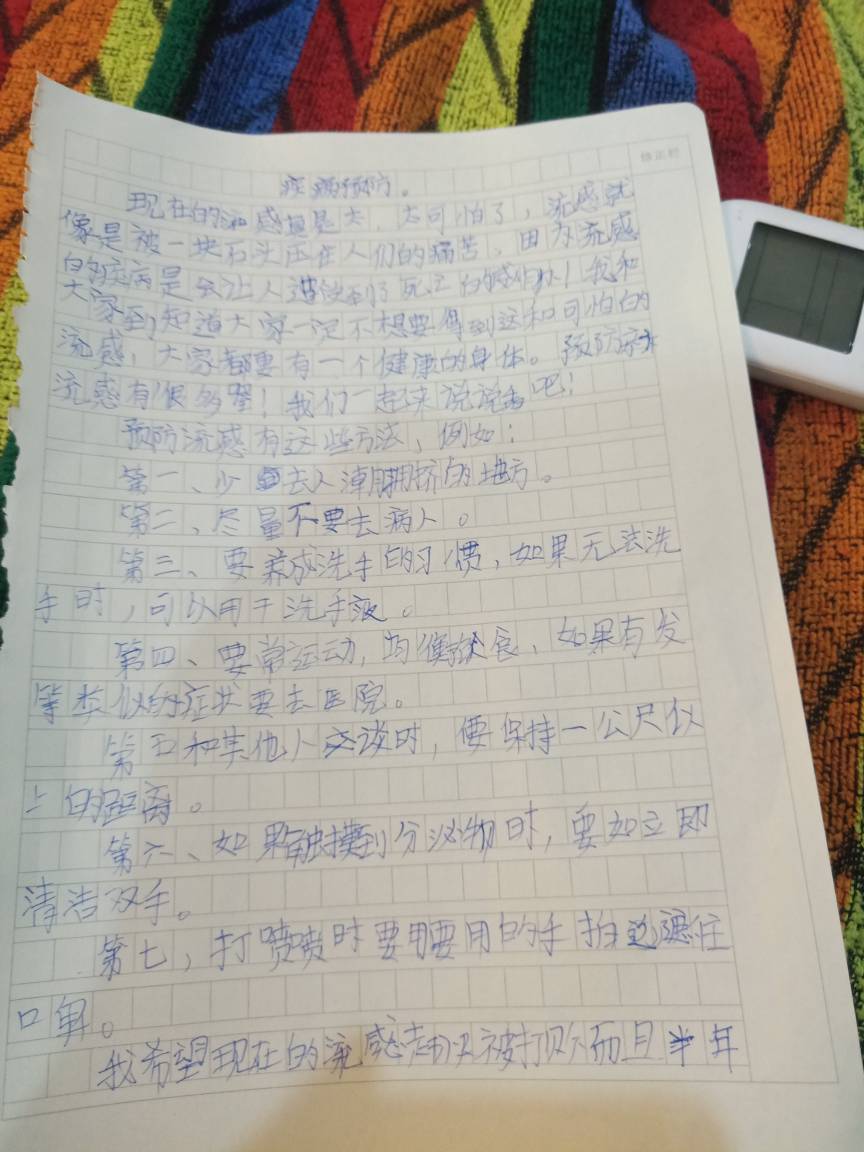 修正栏
疾病预防。
现在的流感太可怕了，流感就
像是被一块石头压在人们的痛苦，因为流感
的疾病是会让人死亡的！我和
大家到知道大家一定不想要得到这种可怕的
流感，大家都要有一个健康的身体。预防
流感有很多！我们一起来说说吧！
预防流感有这些方法，例如：
第一、少去人潮拥挤的地方。
第二、尽量不要去病人。
第三、要养成洗手的习惯，如果无法洗
手时，可以用干洗手液。
第四、要常运动，均衡饮食，如果有发
等类似的症状要去医院。
第五和其他人交谈时，便保持一公尺以
上的距离。
第六、如果触摸到分泌物时，要如立即
清洁双手。
第七，打喷喷时要用的手拍遮住
口鼻。
我希望现在的流感被打败而且半年